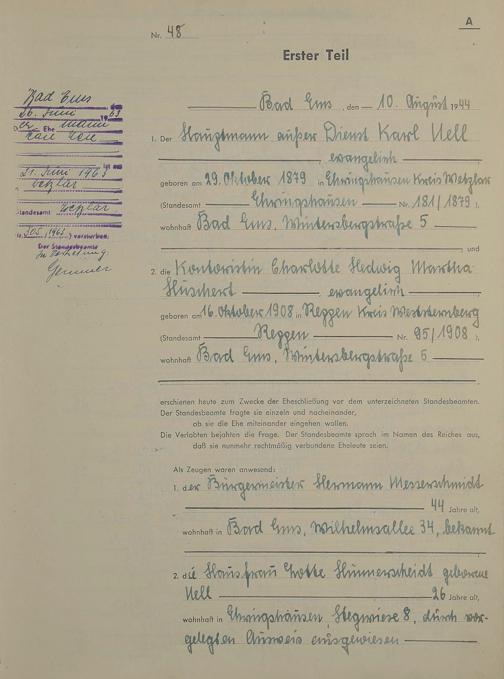 A
Nr. 48
Erster Teil
Bad Ems, den 10. August 1944
1. Der Hauptmann außer Dienst Karl Uell
evangelisch
geboren am 29. Oktober 1879 in Ehringshausen Kreis Wetzlar
(Standesamt Ehringshausen Nr. 181/1879),
wohnhaft Bad Ems, Wintersbergstraße 5
und
2. die Kontoristin Charlotte Hedwig Martha
evangelisch
geboren am 16. Oktober 1908 in Kreis
(Standesamt Nr. 95/1908),
wohnhaft Bad Ems, Wintersbergstraße 5
erschienen heute zum Zwecke der Eheschließung vor dem unterzeichneten Standesbeamten.
Der Standesbeamte fragte sie einzeln und nacheinander,
ob sie die Ehe miteinander eingehen wollen.
Die Verlobten bejahten die Frage. Der Standesbeamte sprach im Namen des Reiches aus,
daß sie nunmehr rechtmäßig verbundene Eheleute seien.
Als Zeugen waren anwesend:
1. der Bürgermeister Hermann Messerschmidt
44 Jahre alt,
wohnhaft in Bad Ems, Wilhelmsallee 34, bekannt
2. die Hausfrau Lotte geborene
Uell 26 Jahre alt,
wohnhaft in Ehringshausen, Stegwiese 8, durch vor-
gelegten Ausweis ausgewiesen
Bad Ems
26. Juni 1963
Ehemann
21. Juni 1963
Wetzlar
Standesamt Wetzlar
verstorben.
Der Standesbeamte
In Vertretung